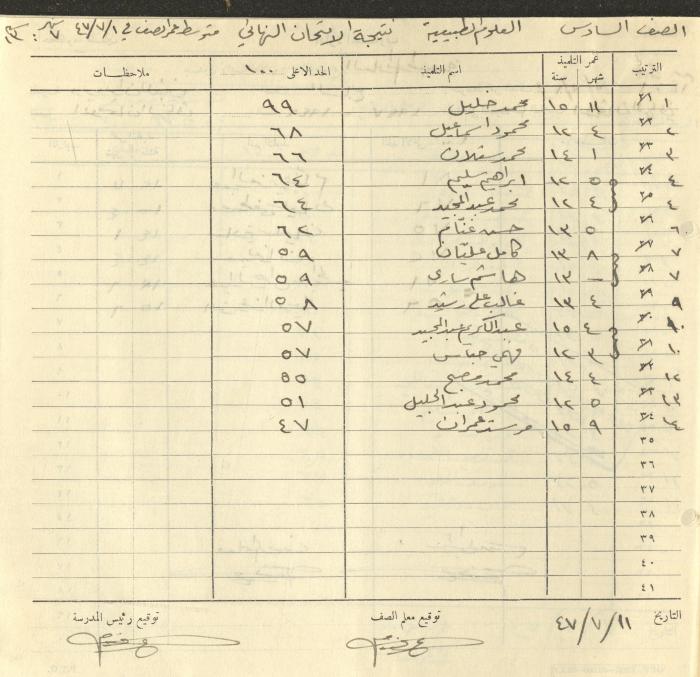 الصف السادس العلوم الطبيعية نتيجة الامتحان النهائي متوسط عمر الصف في ٤٧/٧/١ ٧ شهر : ١٣ سنة
الترتيب عمر التلميذ شهر سنة اسم التلميذ الحد الاعلى ١٠٠ ملاحظات
١ ١١ ١٥ محمد خليل ٩٩
٢ ٤ ١٢ محمود اسماعيل ٦٨
٣ ١ ١٤ محمد ٦٦
٤ ٥ ١٢ ابراهيم سليم ٦٤
٤ ٤ ١٢ محمد عبد المجيد ٦٤
٦ ٥ ١٣ حسن غنام ٦٢
٧ ٨ ١٣ كامل عليان ٥٩
٧ — ١٣ هاشم ساري ٥٩
٩ ٤ ١٣ غالب علي رشيد ٥٨
١٠ ٤ ١٥ عبد الكريم عبد المجيد ٥٧
١٠ ٣ ١٢ فهمي عباس ٥٧
١٢ ٤ ١٤ محمد مصبح ٥٥
١٣ ٥ ١٢ محمود عبد الجليل ٥١
١٤ ٩ ١٥ مرسي عمران ٤٧
٣٥
٣٦
٣٧
٣٨
٣٩
٤٠
٤١
التاريخ ٤٧/٧/١١ توقيع معلم الصف توقيع رئيس المدرسة